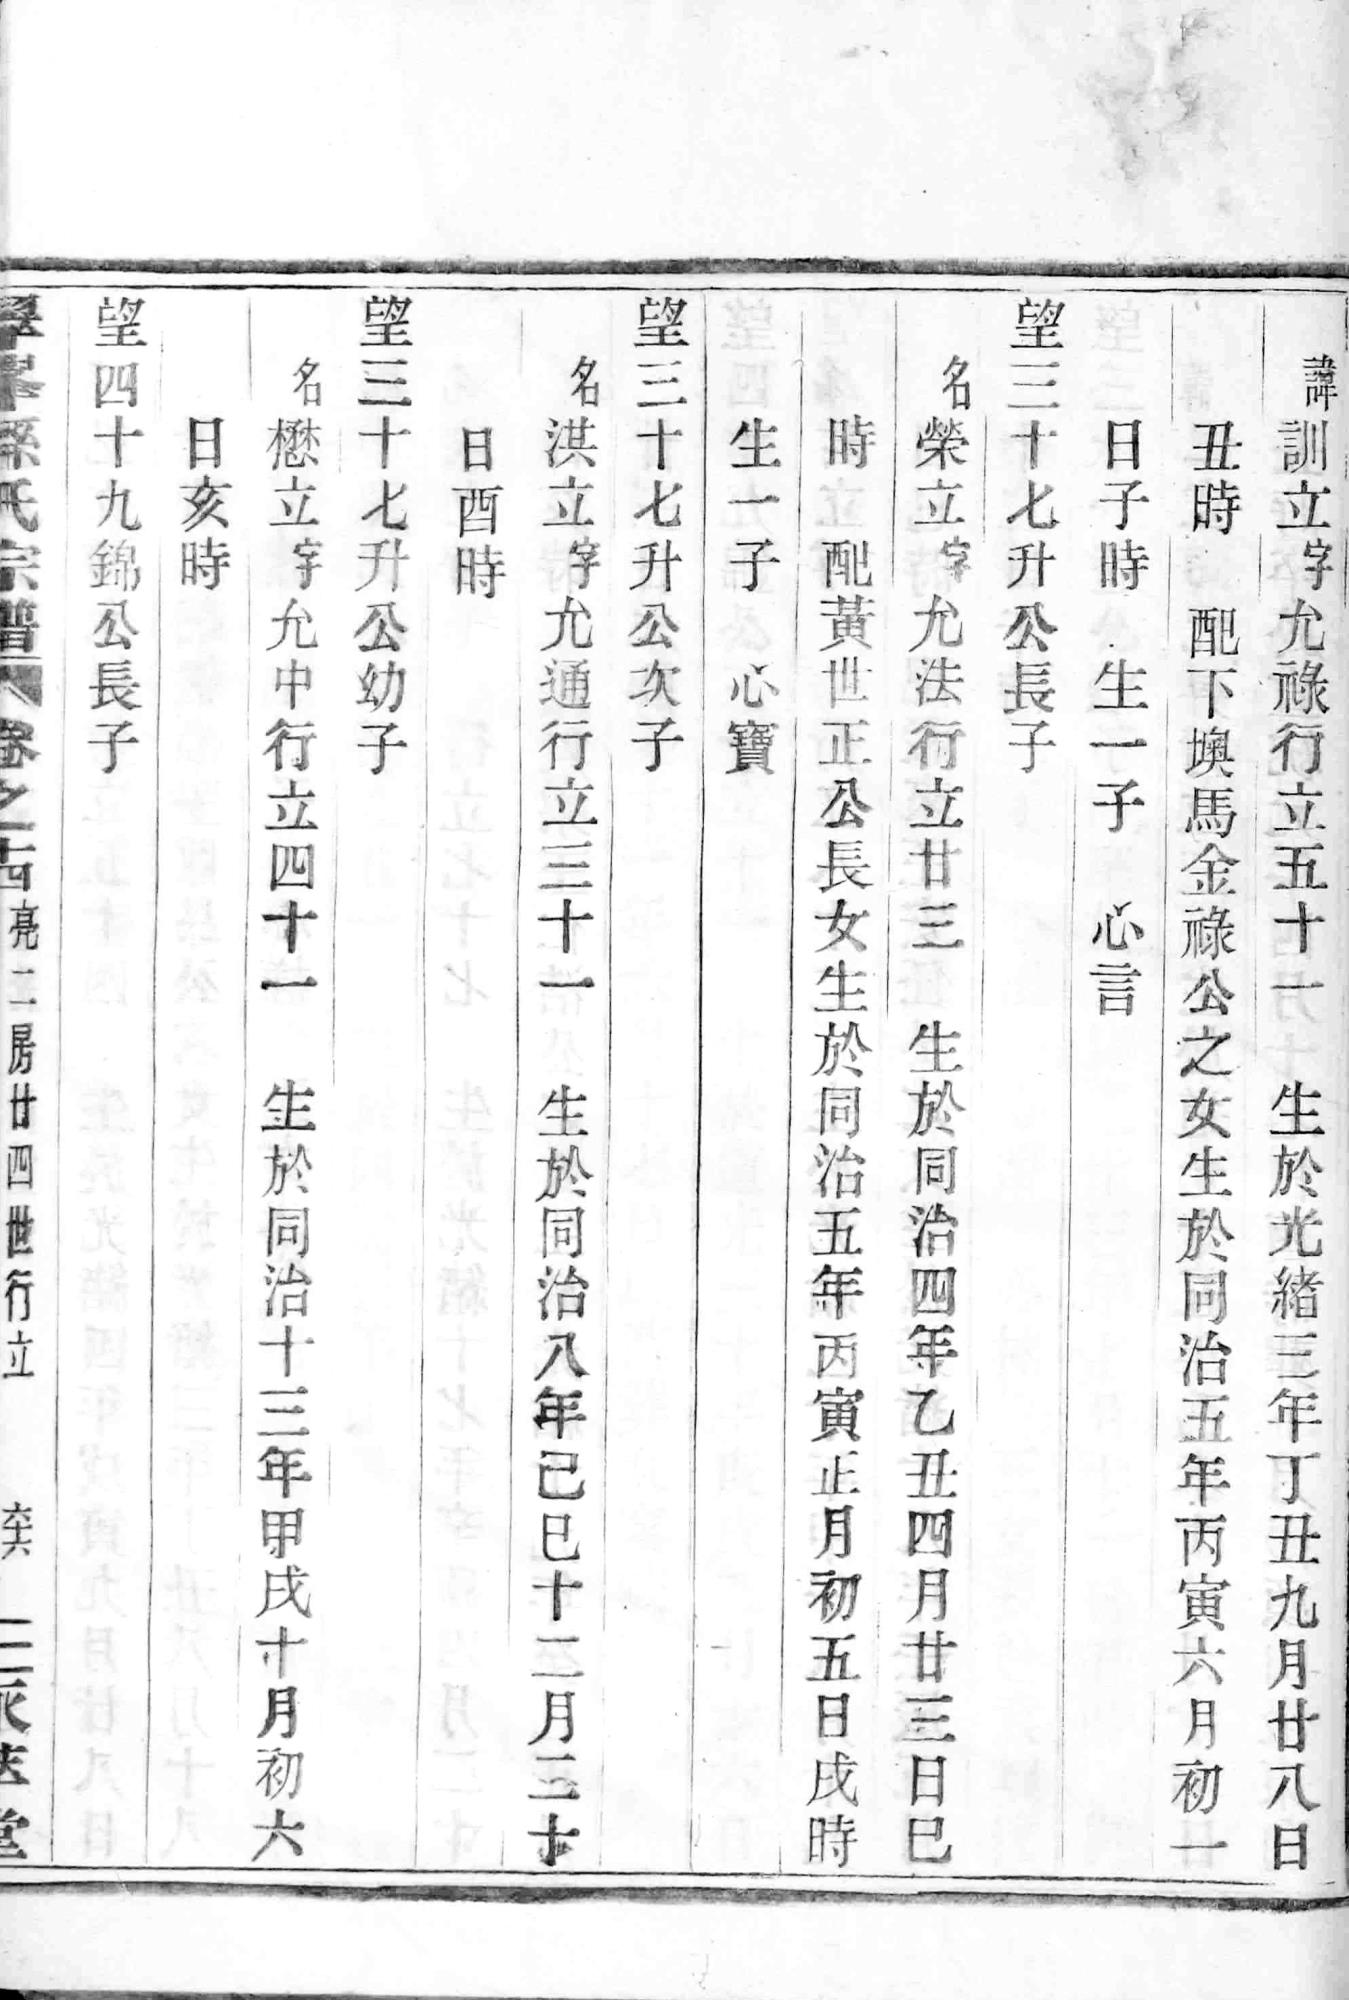 諱訓立字允祿行立五十一 生於光緒三年丁丑九月廿八日
丑時 配下墺馬金祿公之女生於同治五年丙寅六月初一
日子時 生一子 心言
望三十七升公長子
名榮立字允法行立廿三 生於同治四年乙丑四月廿三日巳
時 配黃世正公長女生於同治五年丙寅正月初五日戌時
生一子 心寶
望三十七升公次子
名洪立字允通行立三十一 生於同治八年己巳十二月二十
日酉時
望三十七升公幼子
名懋立字允中行立四十一 生於同治十三年甲戌十月初六
日亥時
望四十九錦公長子
孫氏宗譜 卷之十四 亮二房廿四世行立 堂